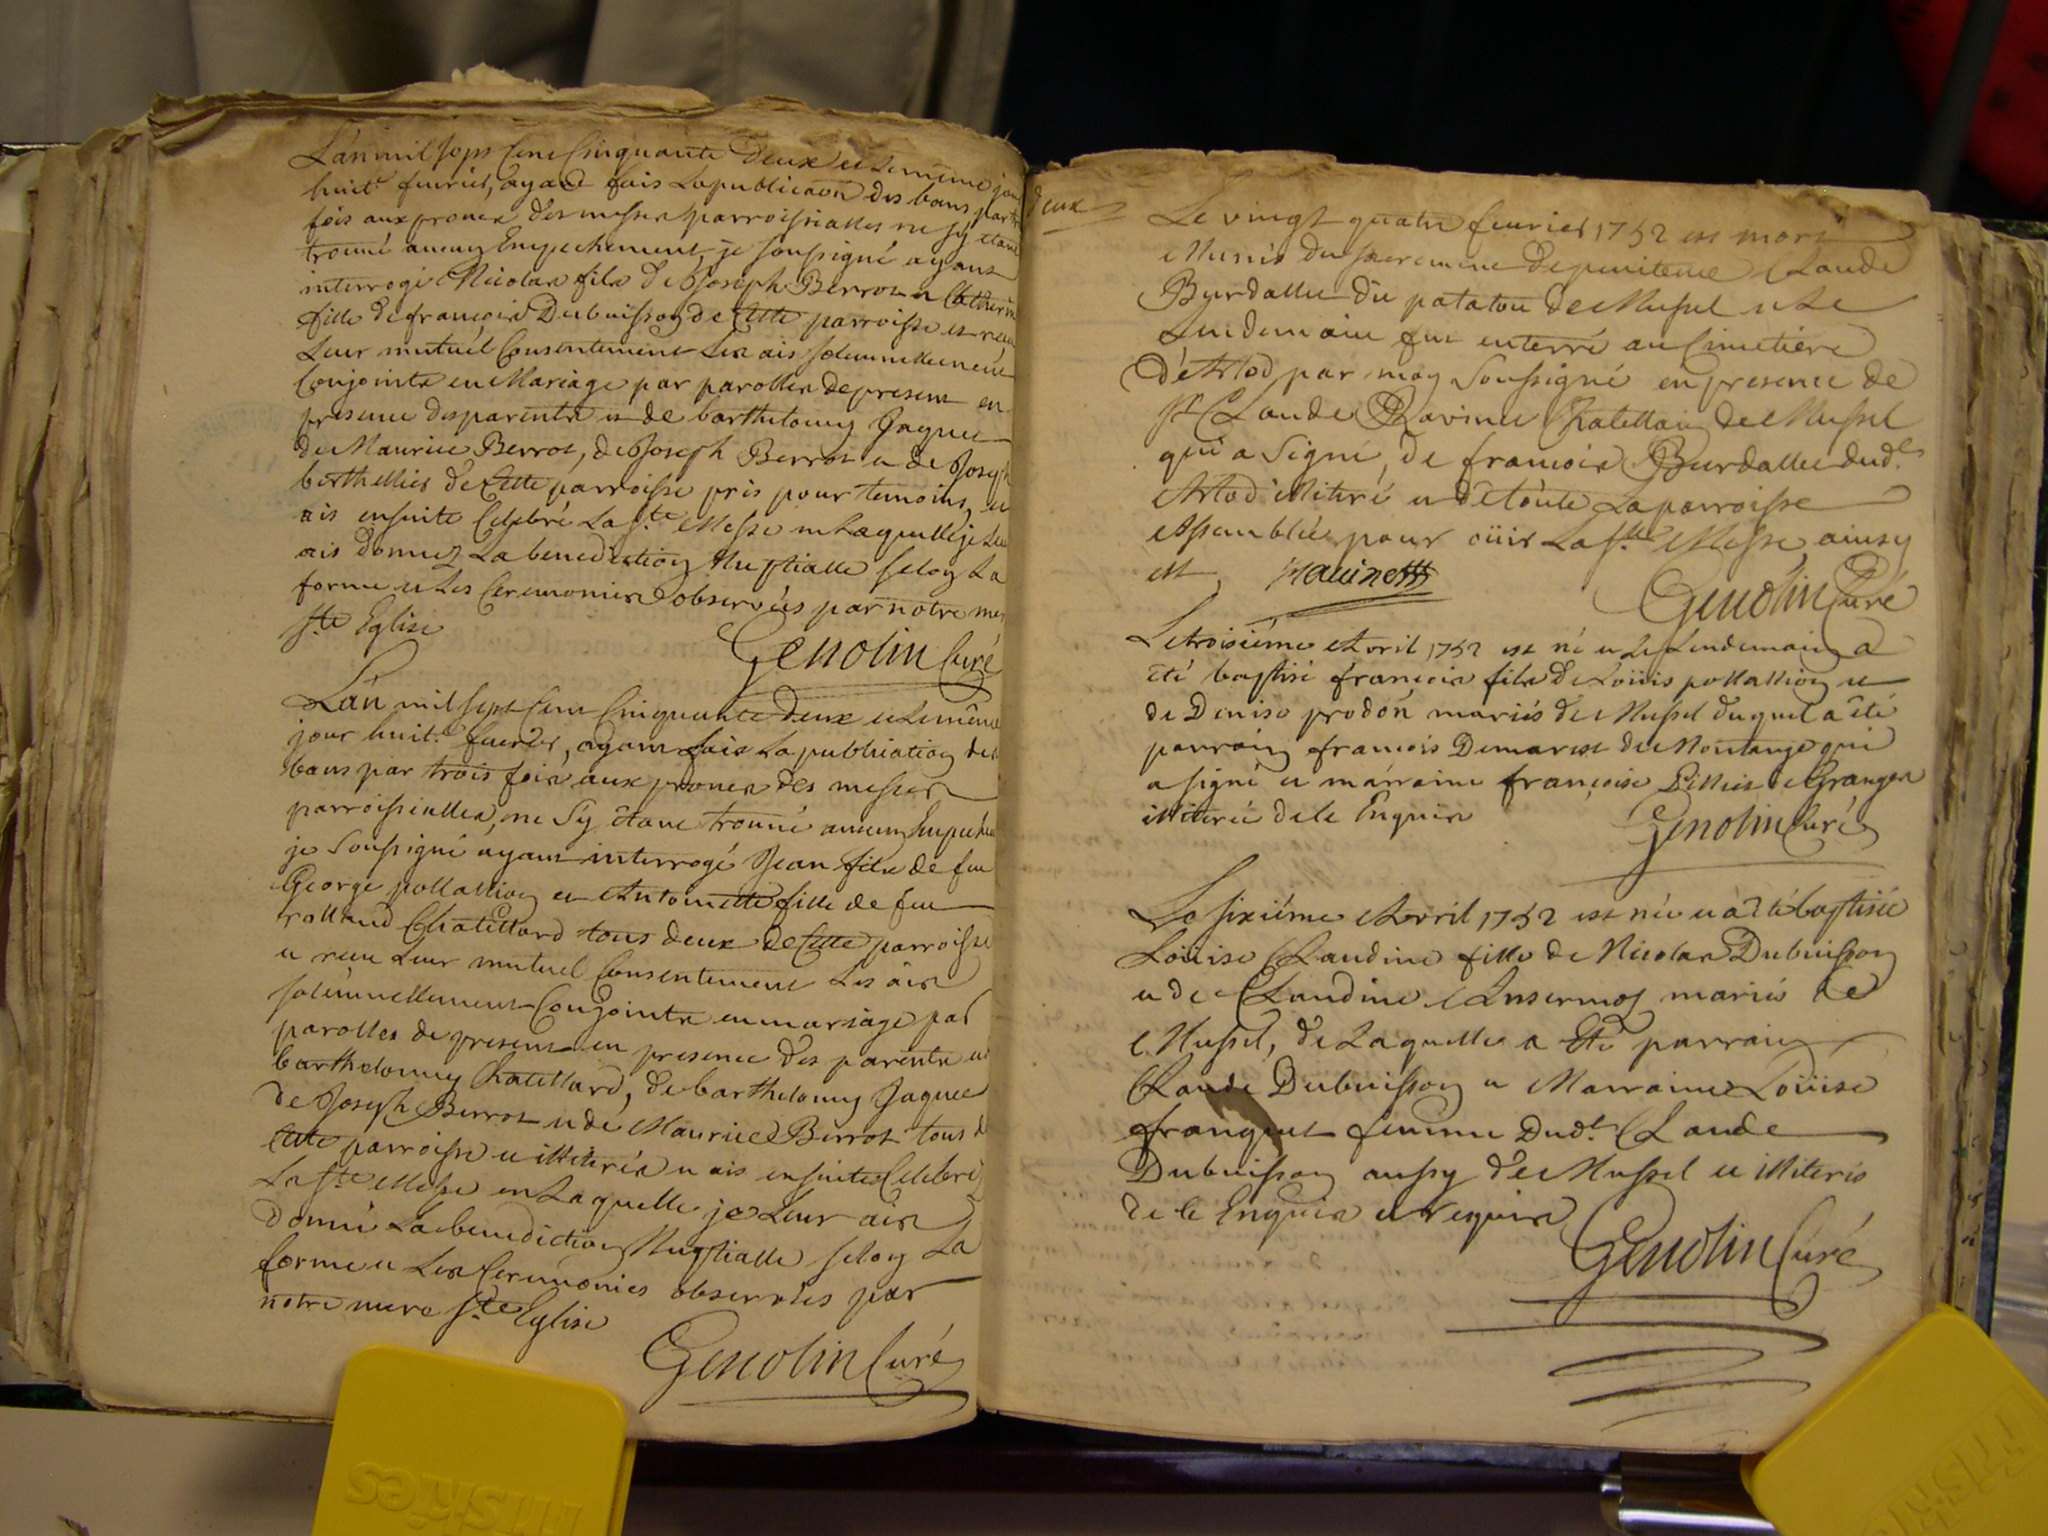 L'an mil sept Cent Cinquante Deux et le même jour
huit.e feuvrier, ayant fais La publicaõn des bans par trois
fois aux prones des messes parroissialles ne sÿ étant
trouvé aucun Empechement, je soussigné ayant
interrogé Nicolas fils de Joseph Berrot et Catherine
fille de françois Dubuisson de Cette parroisse et receu
Leur mutuel Consentement Les ais solemnellement
Conjoints en Mariage par parolles de present en
presence des parents et de barthelomy Jaquet
de Maurice Berrot, de Joseph Berrot et de Joseph
berthellier de Cette parroisse pris pour temoins, et
ais ensuite Celebré La S.te Messe en Laquelle je Leur
ais donnez La benediction Nuptialle selon La
forme et Les Ceremonies observées par notre mere
S.te Eglise
Genolin Curé
L'an mil sept Cent Cinquante Deux et le même
jour huit.e feuvrier, ayant fais La publiation des
bans par trois fois aux prones des messes
parroissialles, ne sÿ étant trouvé aucun Empeche
je soussigné ayant interrogé Jean fils de feu
George pollallion et Antoinette fille de feu
rolland Chatellard tous deux de Cette parroisse
et receu Leur mutuel Consentement Les ais
solemnellement Conjoints en mariage par
parolles de present en presence des parents et
barthelomy Chatellard, de barthelomy Jaquet
de Joseph Berrot et de Maurice Berrot tous de
Cette parroisse et illiterés et ais ensuite Celebré
La S.te Messe en Laquelle je Leur ais
donné La benediction Nuptialle selon La
forme et Les Ceremonies observées par
notre mere S.te Eglise
Genolin Curé
deux
Le vingt quatre feuvrier 1752 est mort
Munis du sacrement de penitence Claude
Burdallet du patatou de Mussel et Le
Lendemain fut enterré au Cimetiere
D'Arlod par moy soussigné en presence de
S.r Claude Ravinet Chatellain de Mussel
qui a signé, de francois Burdallet dud.t
Arlod illiteré et de toute La parroisse
Assemblée pour oüir La S.te Messe ainsy
est Ravinet
Genolin Curé
Le troisiéme Avril 1752 est né et Le Lendemain a
été baptisé françois fils de Loüis pollallion et
de Denise prodon mariés de Mussel duquel a été
parrain françois Demarest de Montange qui
a signé et marraine françoise Pillier Granger
illiterée de le Enquis
Genolin Curé
Le sixiéme Avril 1752 est née et a été baptisée
Loüise Claudine fille de Nicolas Dubuisson
et de Claudine Ansermoz mariés de
Mussel, de Laquelle a été parrain
Claude Dubuisson et Marraine Loüise
franquet femme Dud.t Claude
Dubuisson aussy de Mussel et illiterés
de le Enquis et requis
Genolin Curé
Triskes
Trisk